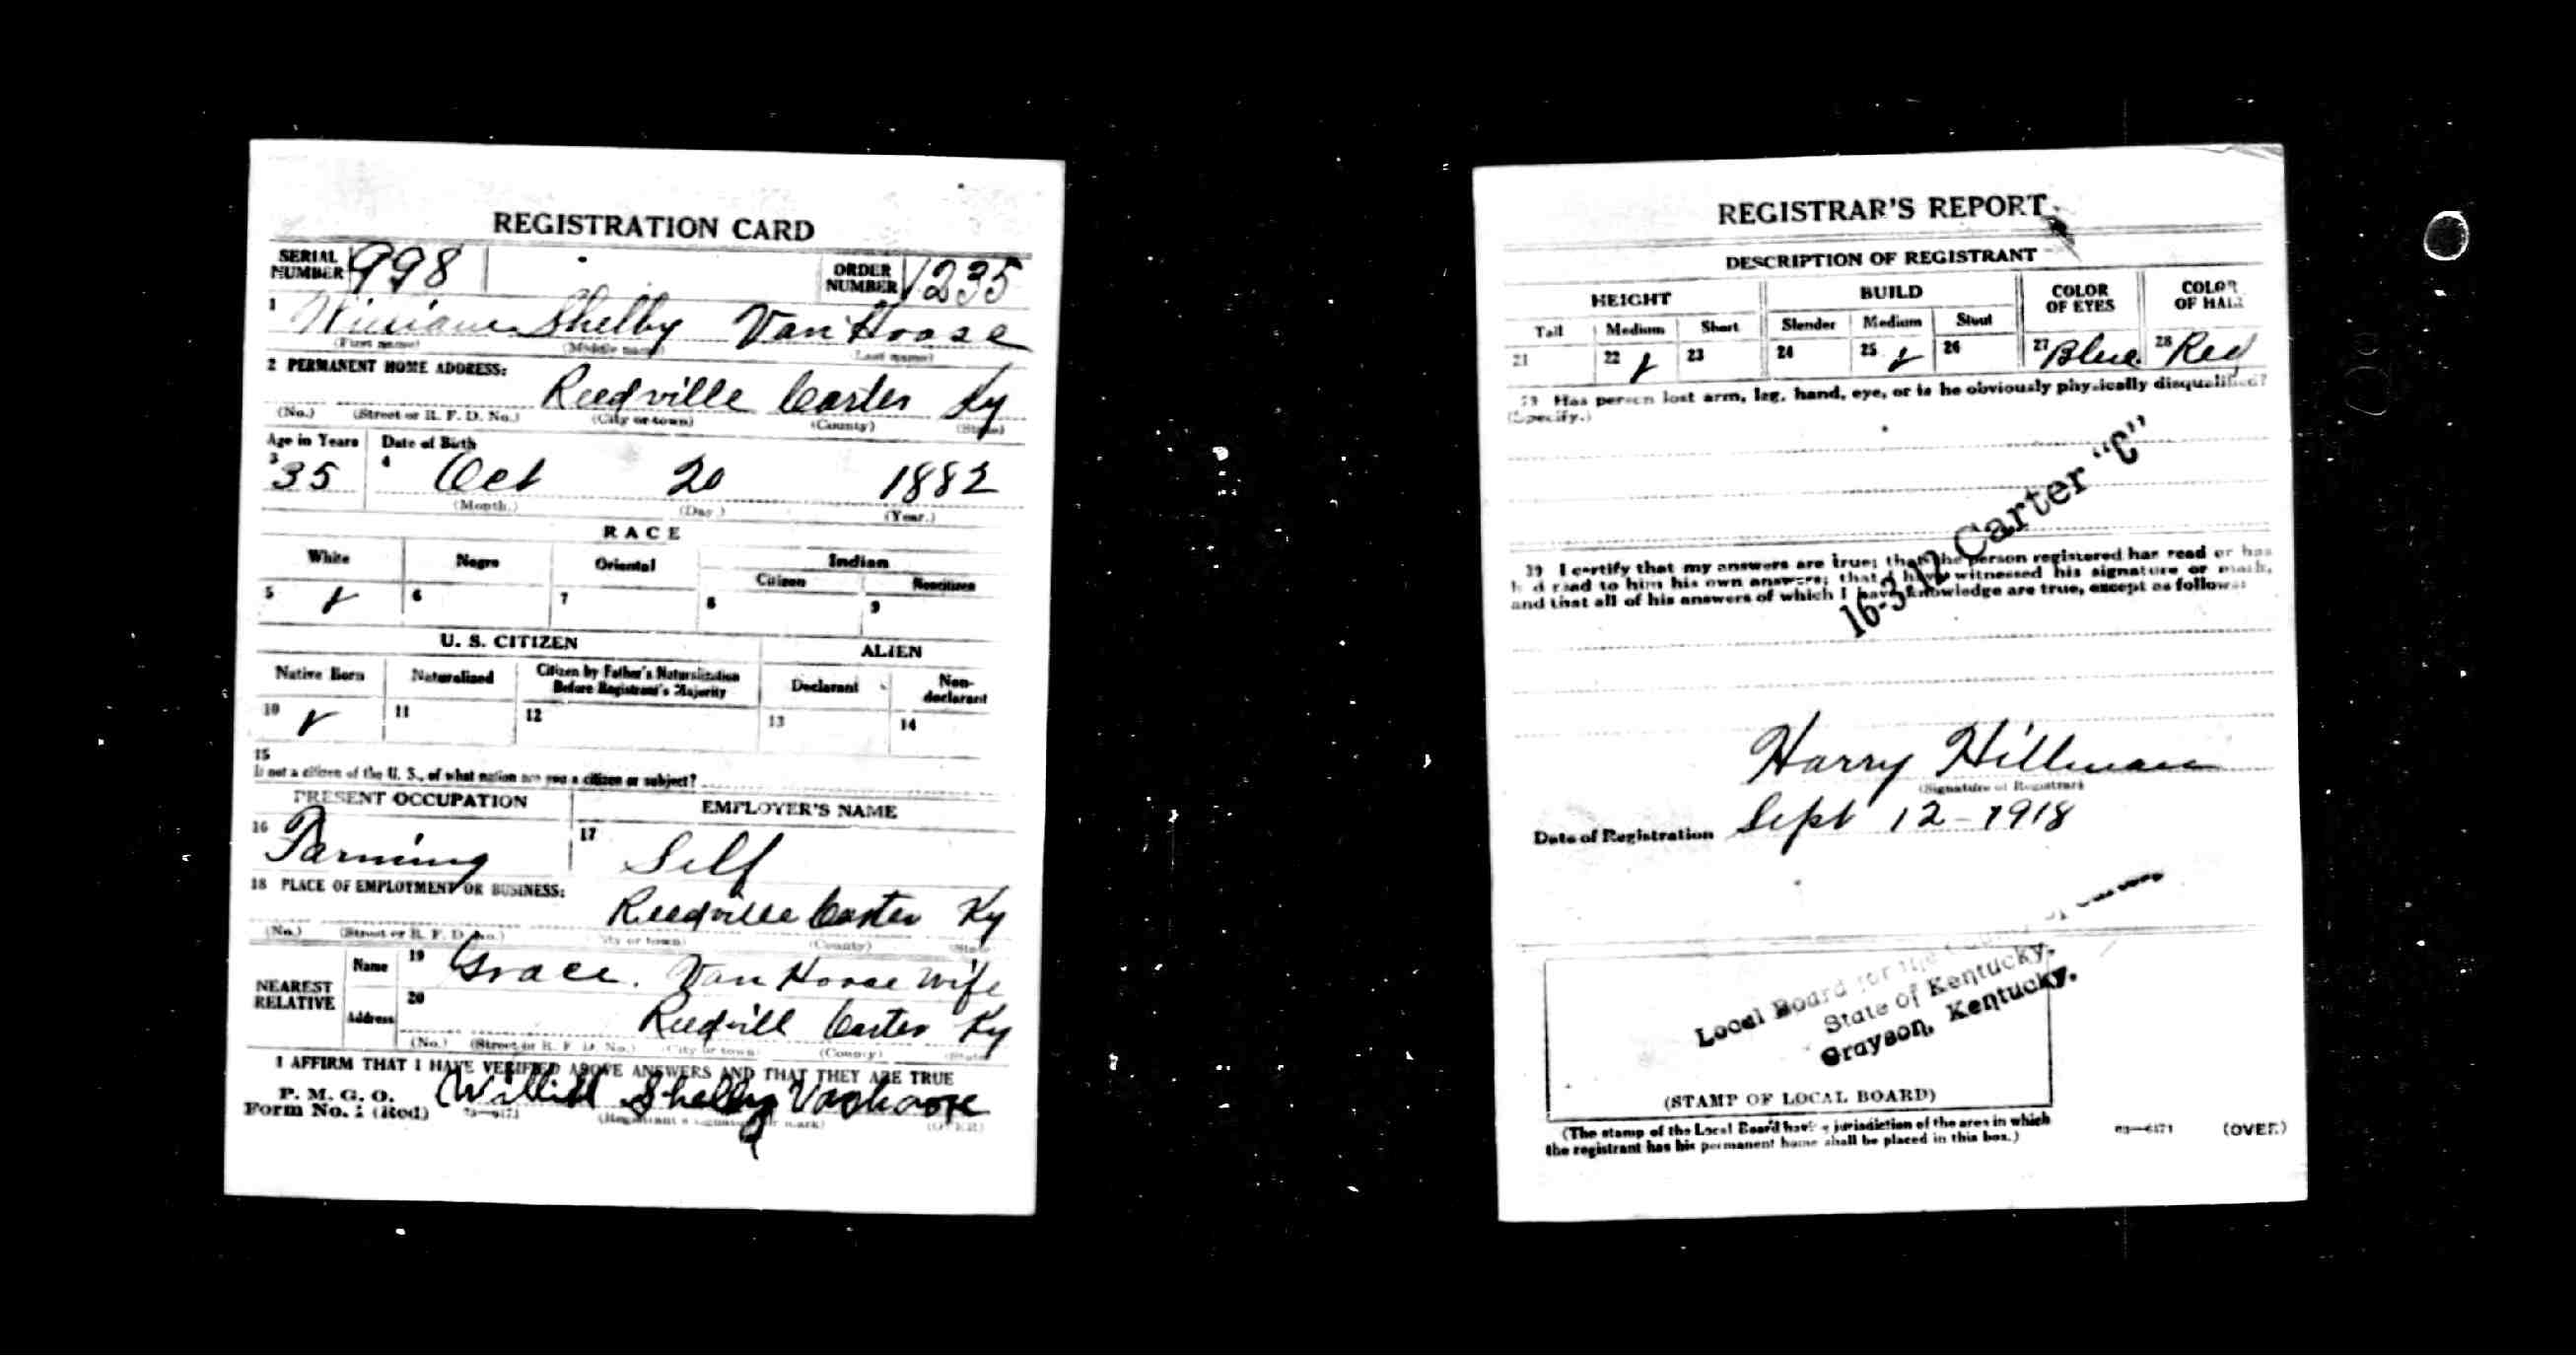 REGISTRATION CARD
SERIAL NUMBER 998 ORDER NUMBER 1235
1 William Shelby Van Hoose
(First name) (Middle name) (Last name)
2 PERMANENT HOME ADDRESS:
Reedville Carter Ky
(No.) (Street or R. F. D. No.) (City or town) (County) (State)
Age in Years Date of Birth
3 35 4 Oct 20 1882
(Month.) (Day.) (Year.)
RACE
White Negro Oriental Indian
Citizen Noncitizen
5 ✓ 6 7 8 9
U. S. CITIZEN ALIEN
Native Born Naturalized Citizen by Father's Naturalization Before Registrant's Majority Declarant Non-declarant
10 ✓ 11 12 13 14
15
If not a citizen of the U. S., of what nation are you a citizen or subject?
PRESENT OCCUPATION EMPLOYER'S NAME
16 Farming 17 Self
18 PLACE OF EMPLOYMENT OR BUSINESS:
Reedville Carter Ky
(No.) (Street or R. F. D. No.) (City or town) (County) (State)
NEAREST RELATIVE
Name 19 Grace. Van Hoose Wife
Address 20 Reedvill Carter Ky
(No.) (Street or R. F. D. No.) (City or town) (County) (State)
I AFFIRM THAT I HAVE VERIFIED ABOVE ANSWERS AND THAT THEY ARE TRUE
P. M. G. O.
Form No. 1 (Red) Shelby Vanhoose
(Registrant's signature or mark) (OVER)
REGISTRAR'S REPORT
DESCRIPTION OF REGISTRANT
HEIGHT BUILD COLOR OF EYES COLOR OF HAIR
Tall Medium Short Slender Medium Stout
21 22 ✓ 23 24 25 ✓ 26 27 Blue 28 Red
29 Has person lost arm, leg, hand, eye, or is he obviously physically disqualified?
(Specify.)
16-3-12 Carter "C"
30 I certify that my answers are true; that the person registered has read or has
had read to him his own answers; that I have witnessed his signature or mark,
and that all of his answers of which I have knowledge are true, except as follows:
Harry Hillman
(Signature of Registrar)
Date of Registration Sept 12-1918
Local Board for the
State of Kentucky.
Grayson, Kentucky.
(STAMP OF LOCAL BOARD)
(The stamp of the Local Board having jurisdiction of the area in which
the registrant has his permanent home shall be placed in this box.)
03—6171 (OVER)